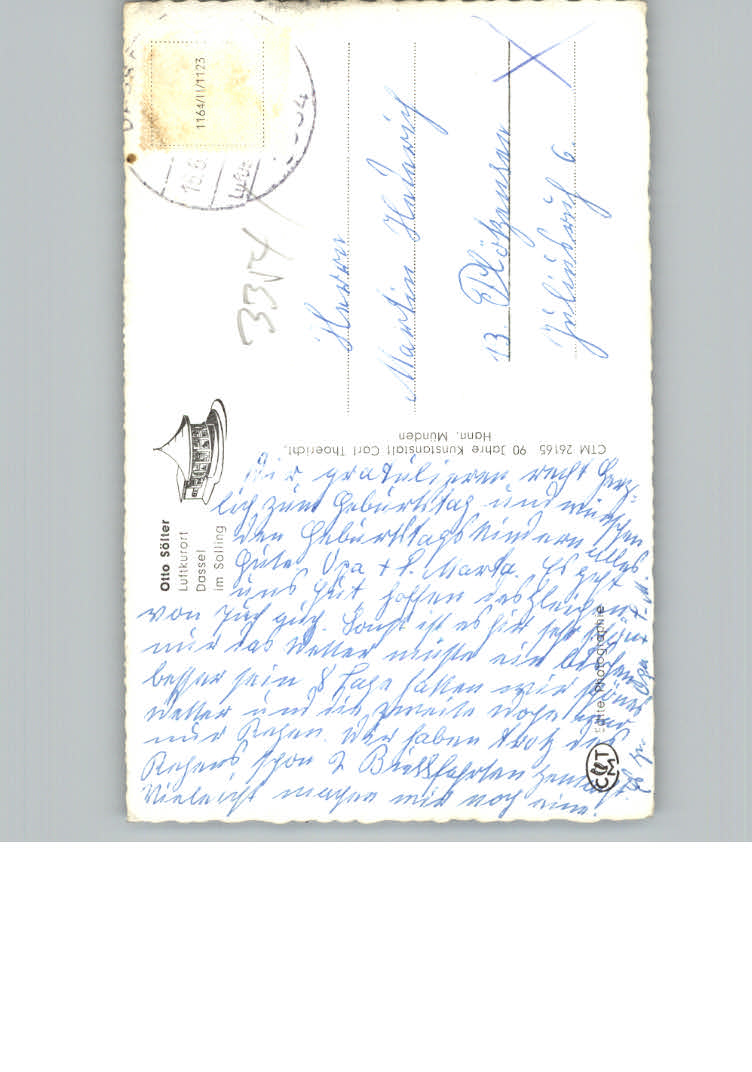 Otto Sölter
Luftkurort
Dassel
im Solling
Wir gratulieren recht herz-
lich zum Geburtstag und wünschen
den Geburtstagskindern alles
Gute Opa + T. Marta. Es geht
uns gut hoffen desgleichen
von Euch auch. Sonst ist es hier sehr schön
nur das Wetter müßte ein bißchen
besser sein 8 Tage hatten wir schönes
Wetter und die zweite Woche
nur Regen. Wir haben trotz des
Regens schon 2 Busfahrten gemacht.
Vieleicht machen wir noch eine.
Opa + T. M.
CTM 26165 90 Jahre Kunstanstalt Carl Thoericht,
Hann. Münden
Echte Photographie
CMT
1164/II/1123
3354
Herrn
Martin
13 Plötzensee
6.